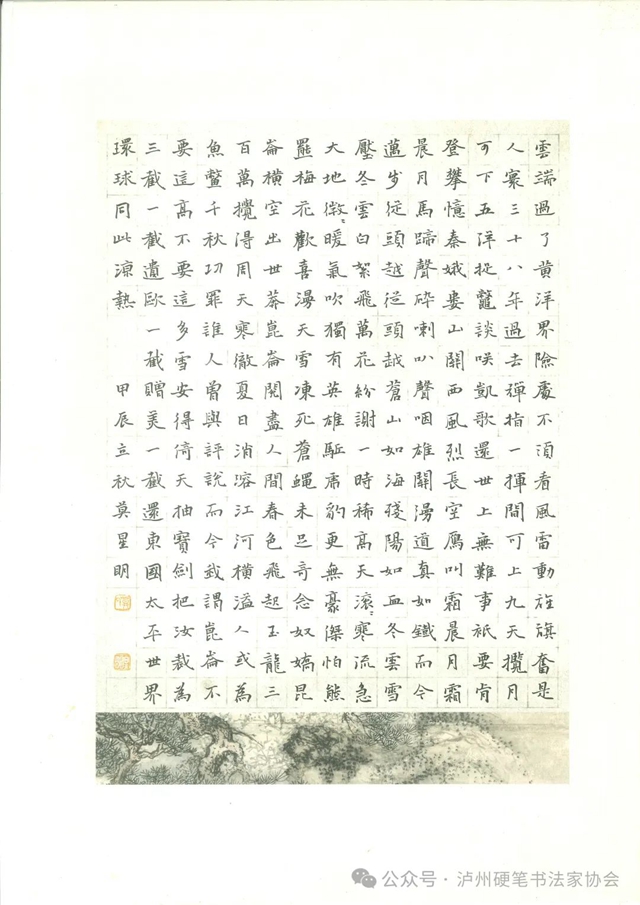 雲端過了黄洋界險處不須看風雷動旌旗奮是
人寰三十八年過去彈指一揮間可上九天攬月
可下五洋捉鼈談咲凱歌還世上無難事衹要肯
登攀憶秦娥婁山關西風烈長空雁叫霜晨月霜
晨月馬蹄聲碎喇叭聲咽雄關漫道真如鐵而今
邁步從頭越從頭越蒼山如海殘陽如血冬雲雪
壓冬雲白絮飛萬花紛謝一時稀高天滚々寒流急
大地微々暖氣吹獨有英雄駈虎豹更無豪傑怕熊
罷梅花歡喜漫天雪凍死蒼蠅未足奇念奴嬌昆
崙横空出世莽崑崙閱盡人間春色飛起玉龍三
百萬攪得周天寒徹夏日消溶江河横溢人或為
魚鼈千秋功罪誰人曾與評説而今我謂崑崙不
要這高不要這多雪安得倚天抽寶劍把汝裁為
三截一截遺歐一截贈美一截還東國太平世界
環球同此凉熱 甲辰立秋莫星明
公众号 · 泸州硬笔书法家协会